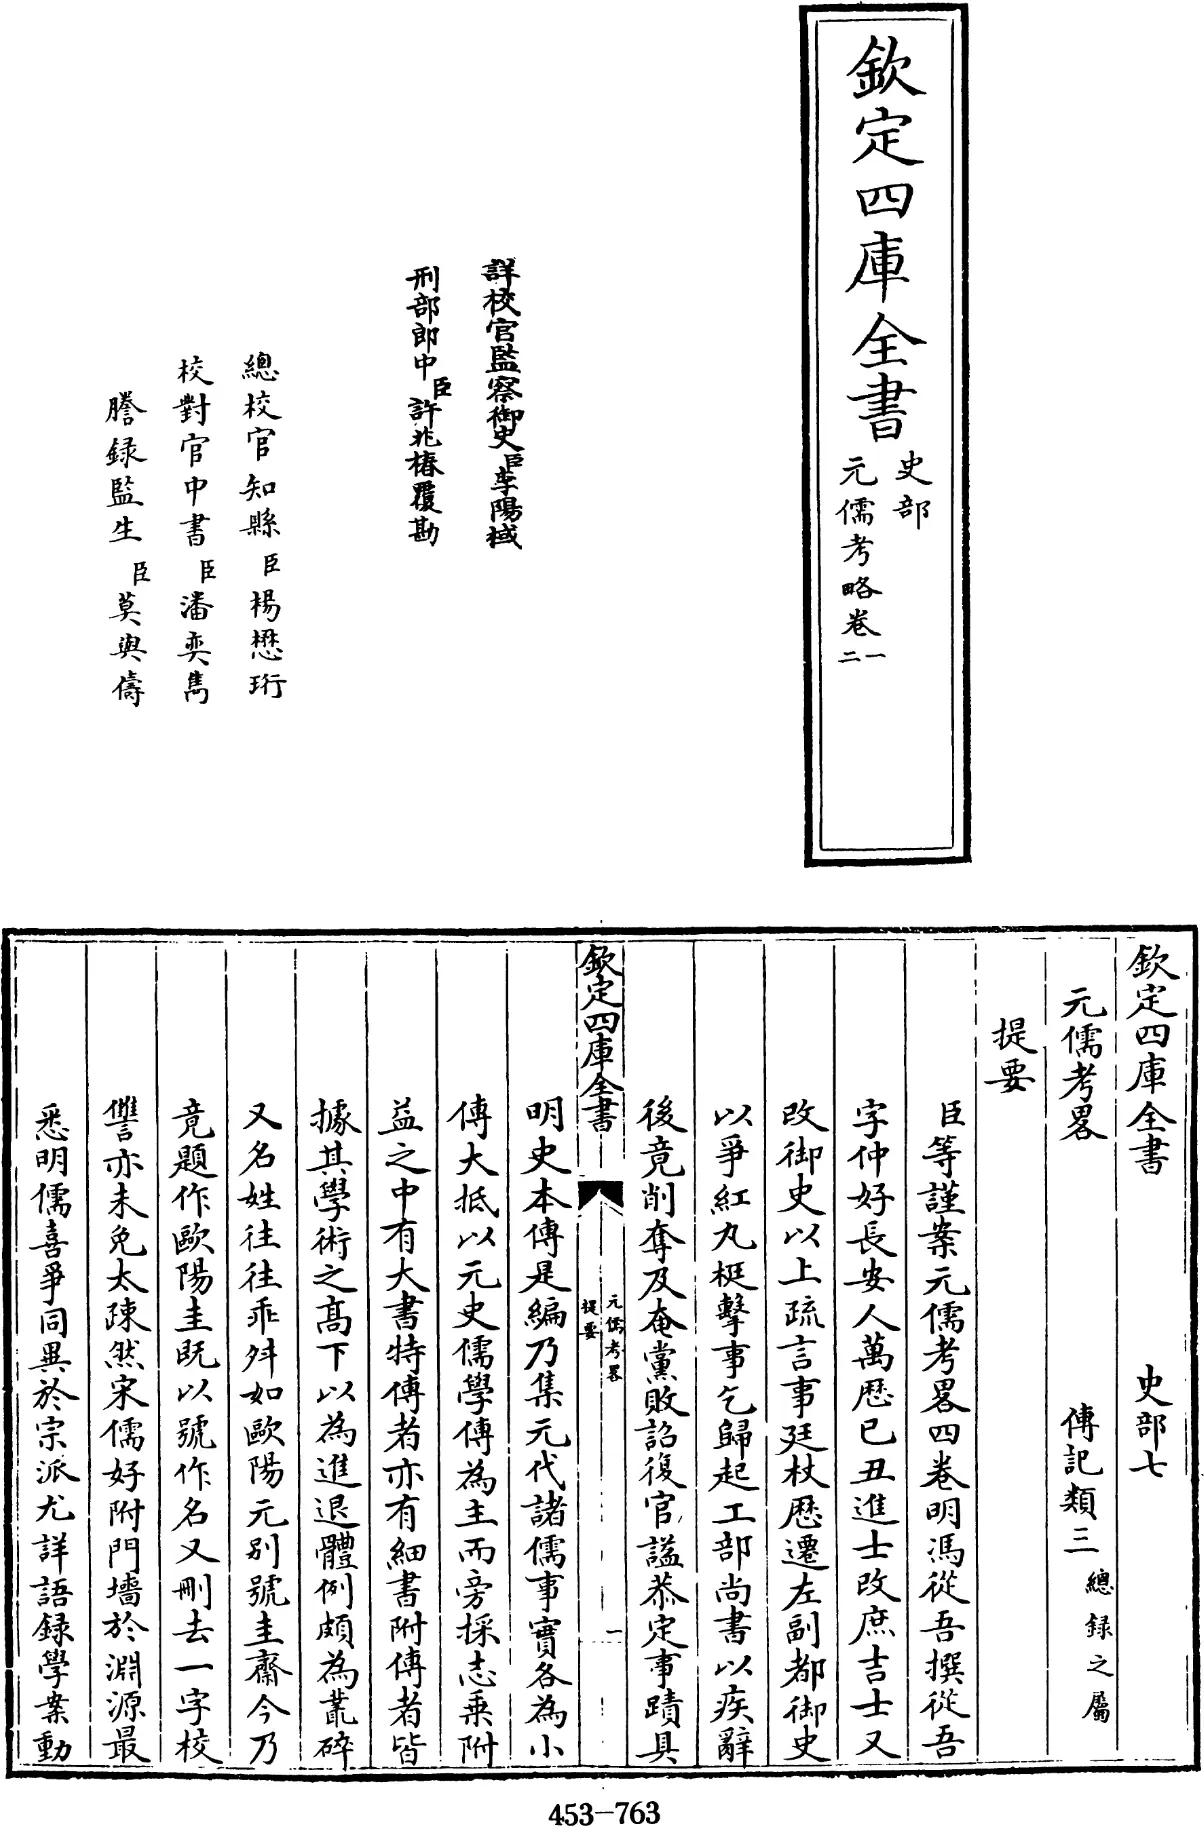 欽定四庫全書
史部
元儒考略卷一
二
詳校官監察御史臣李陽棫
刑部郎中臣許兆椿覆勘
總校官知縣臣楊懋珩
校對官中書臣潘奕雋
謄錄監生臣莫與儔
欽定四庫全書 史部七
元儒考畧 傳記類三總錄之屬
提要
臣等謹案元儒考畧四卷明馮從吾撰從吾
字仲好長安人萬厯己丑進士改庶吉士又
改御史以上疏言事廷杖厯遷左副都御史
以爭紅丸梃擊事乞歸起工部尚書以疾辭
後竟削奪及奄黨敗詔復官謚恭定事蹟具
欽定四庫全書
元儒考畧
提要
一
明史本傳是編乃集元代諸儒事實各為小
傳大抵以元史儒學傳為主而旁採志乘附
益之中有大書特傳者亦有細書附傳者皆
據其學術之髙下以為進退體例頗為叢碎
又名姓往往乖舛如歐陽元别號圭齋今乃
竟題作歐陽圭既以號作名又刪去一字校
讐亦未免太疎然宋儒好附門墻於淵源最
悉明儒喜爭同異於宗派尤詳語録學案動
453-763